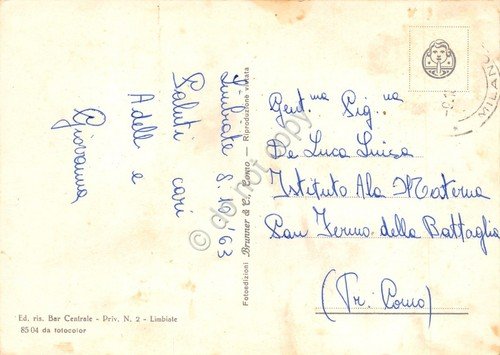 Limbiate 8.10.'63
Saluti cari
Adele e
Giovanna
Gent.ma Sig.na
De Luca Luisa
Istituto Ala Materna
San Fermo della Battaglia
(Pr. Como)
Fotoedizioni Brunner & C., Como — Riproduzione vietata
Ed. ris. Bar Centrale - Priv. N. 2 - Limbiate
85/04 da fotocolor
MILAN
do not copy